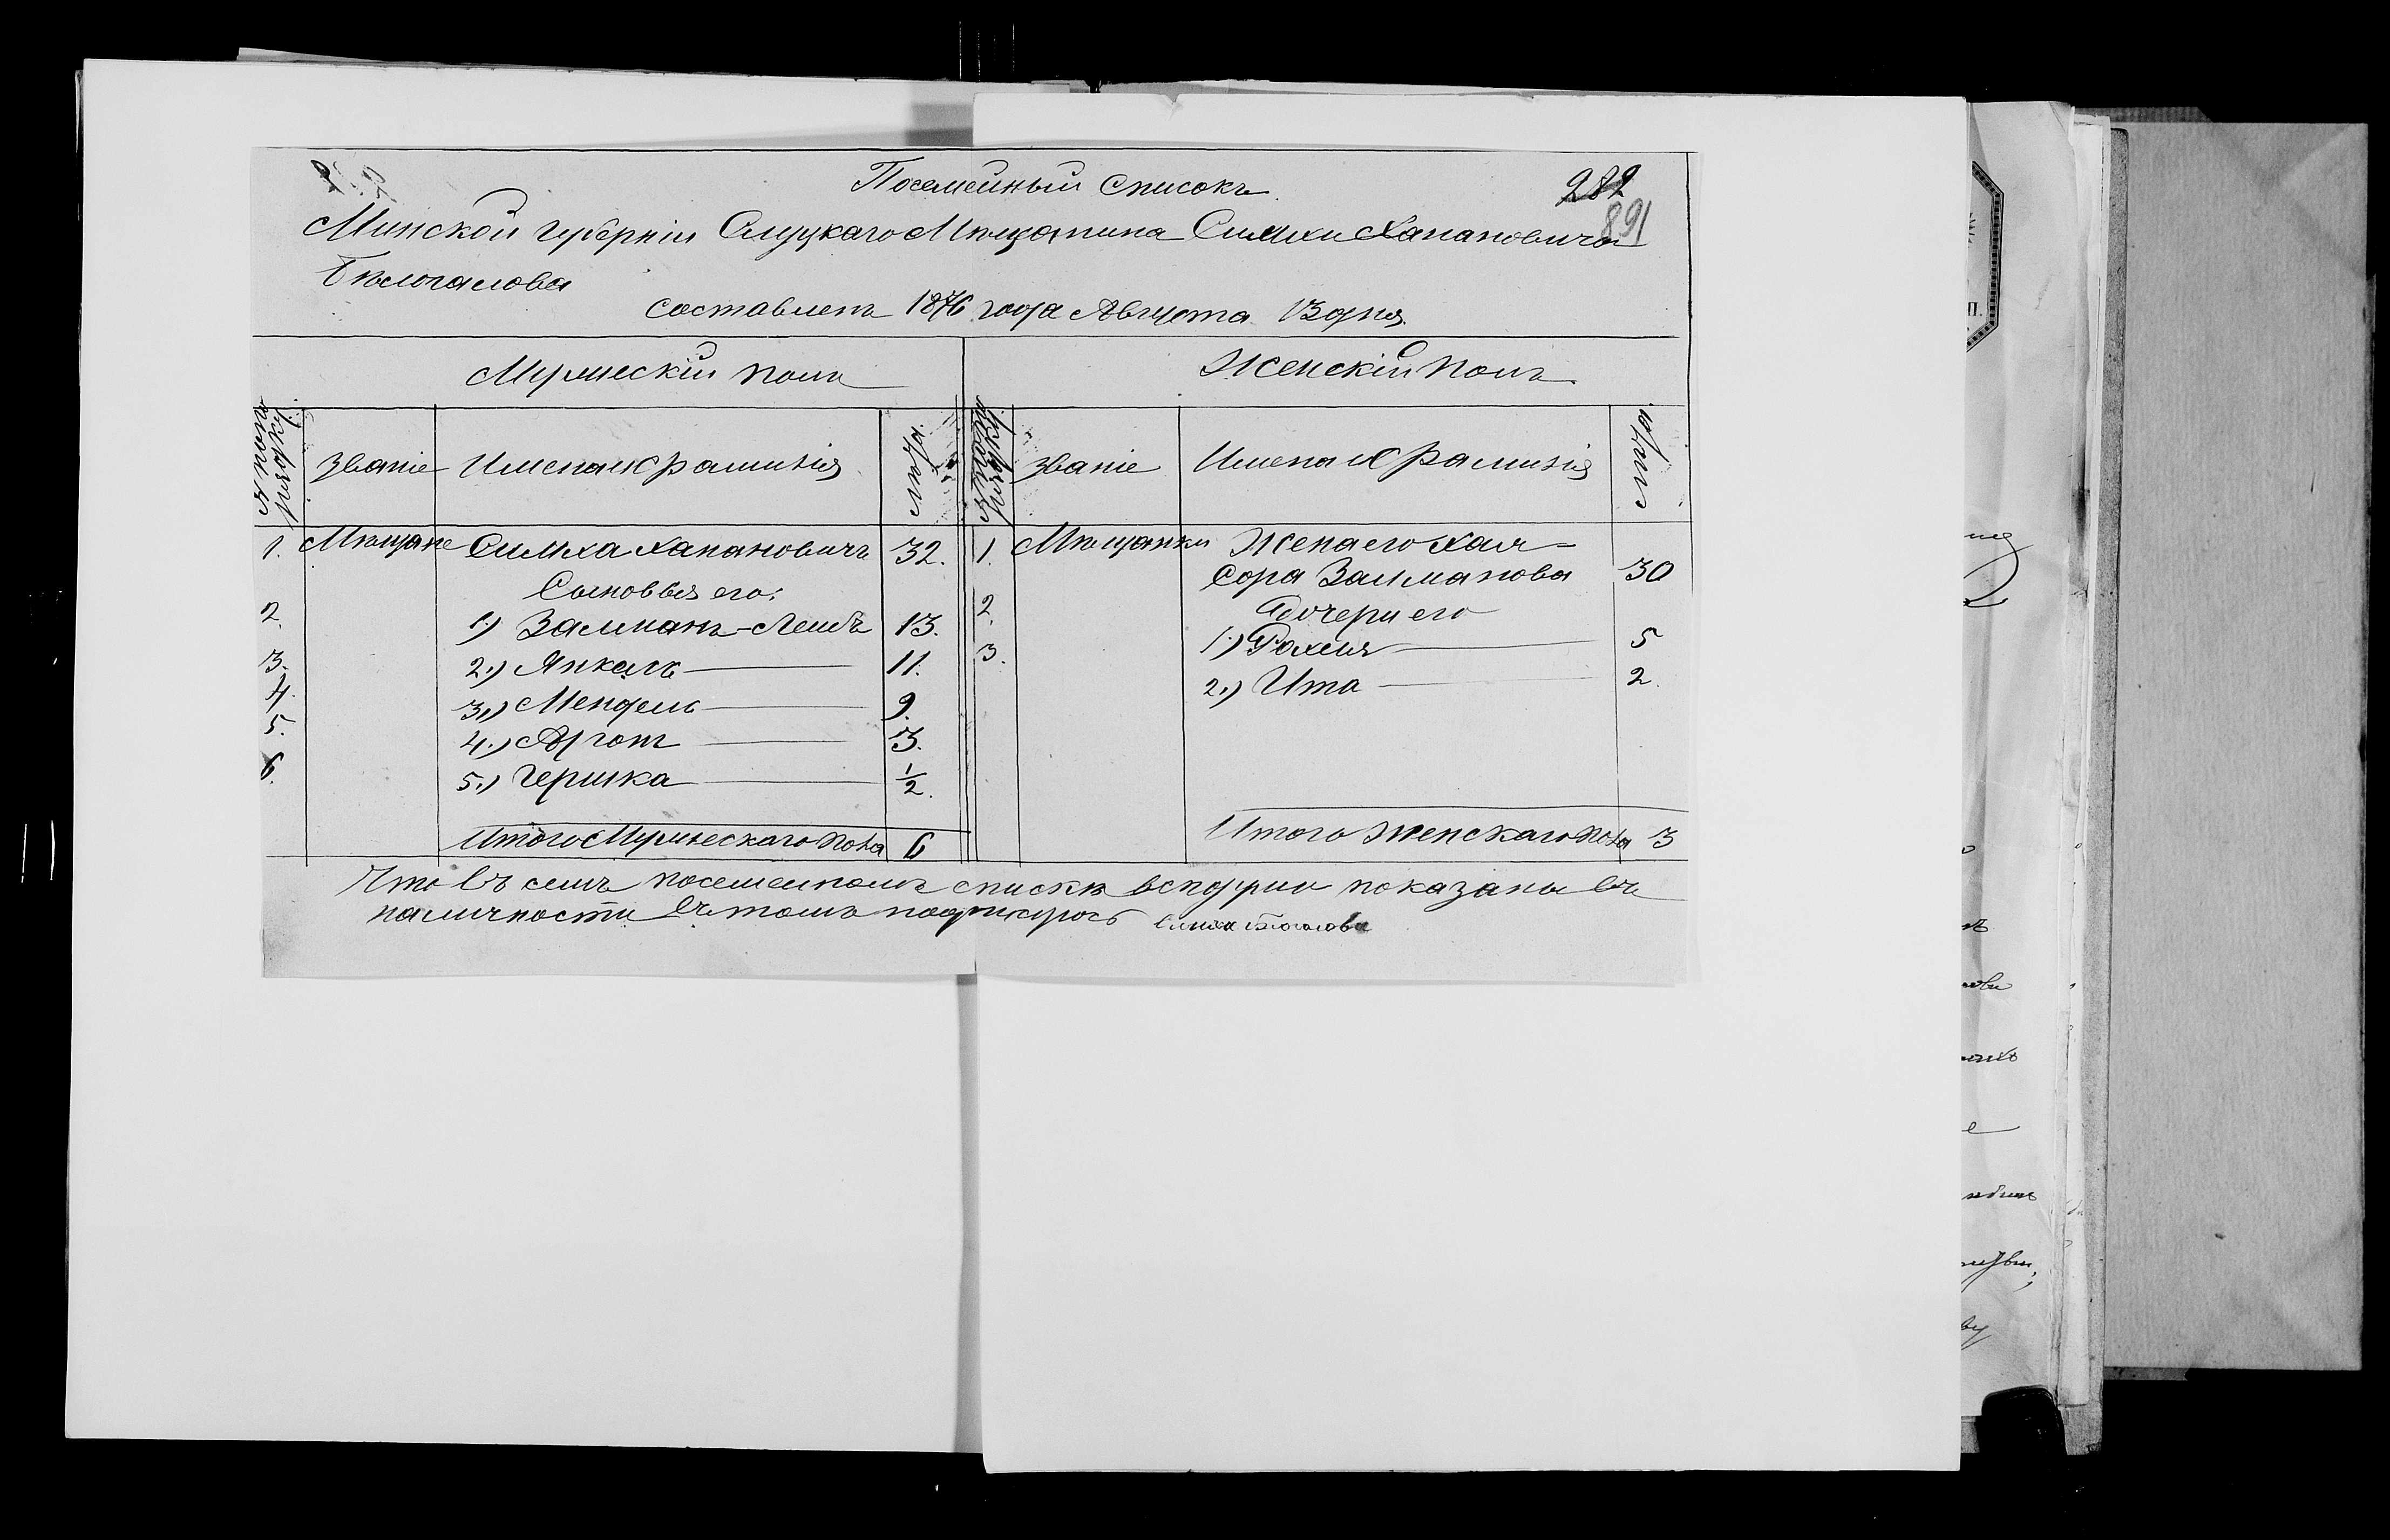 Посемейный Списокъ.
282
891
Минской губерніи Слуцкаго Мѣщанина Симхи Хановича
Бѣлоголова
Составленъ 1876 года Августа 13 дня.
Мужескій полъ
Женскій полъ.
№ по порядку
званіе
Имена и фамилія
лѣта
№ по порядку
званіе
Имена и фамилія
лѣта
1. Мѣщане Симха Ханановичъ 32.
1. Мѣщанки Жена его Хая-
Сора Залманова 30
Сыновья его:
2. 1.) Залманъ-Лейбъ 13.
2. Дочери его
3. 1.) Рохля 5
3. 2.) Янкель 11.
2.) Ита 2.
4. 3.) Мендель 9.
5. 4.) Аронъ 3.
6. 5.) Гершка 1/2.
Итого Мужескаго пола 6
Итого Женскаго пола 3
Что въ семъ посемейномъ спискѣ всѣ души показаны въ
наличности въ томъ подписуюсь